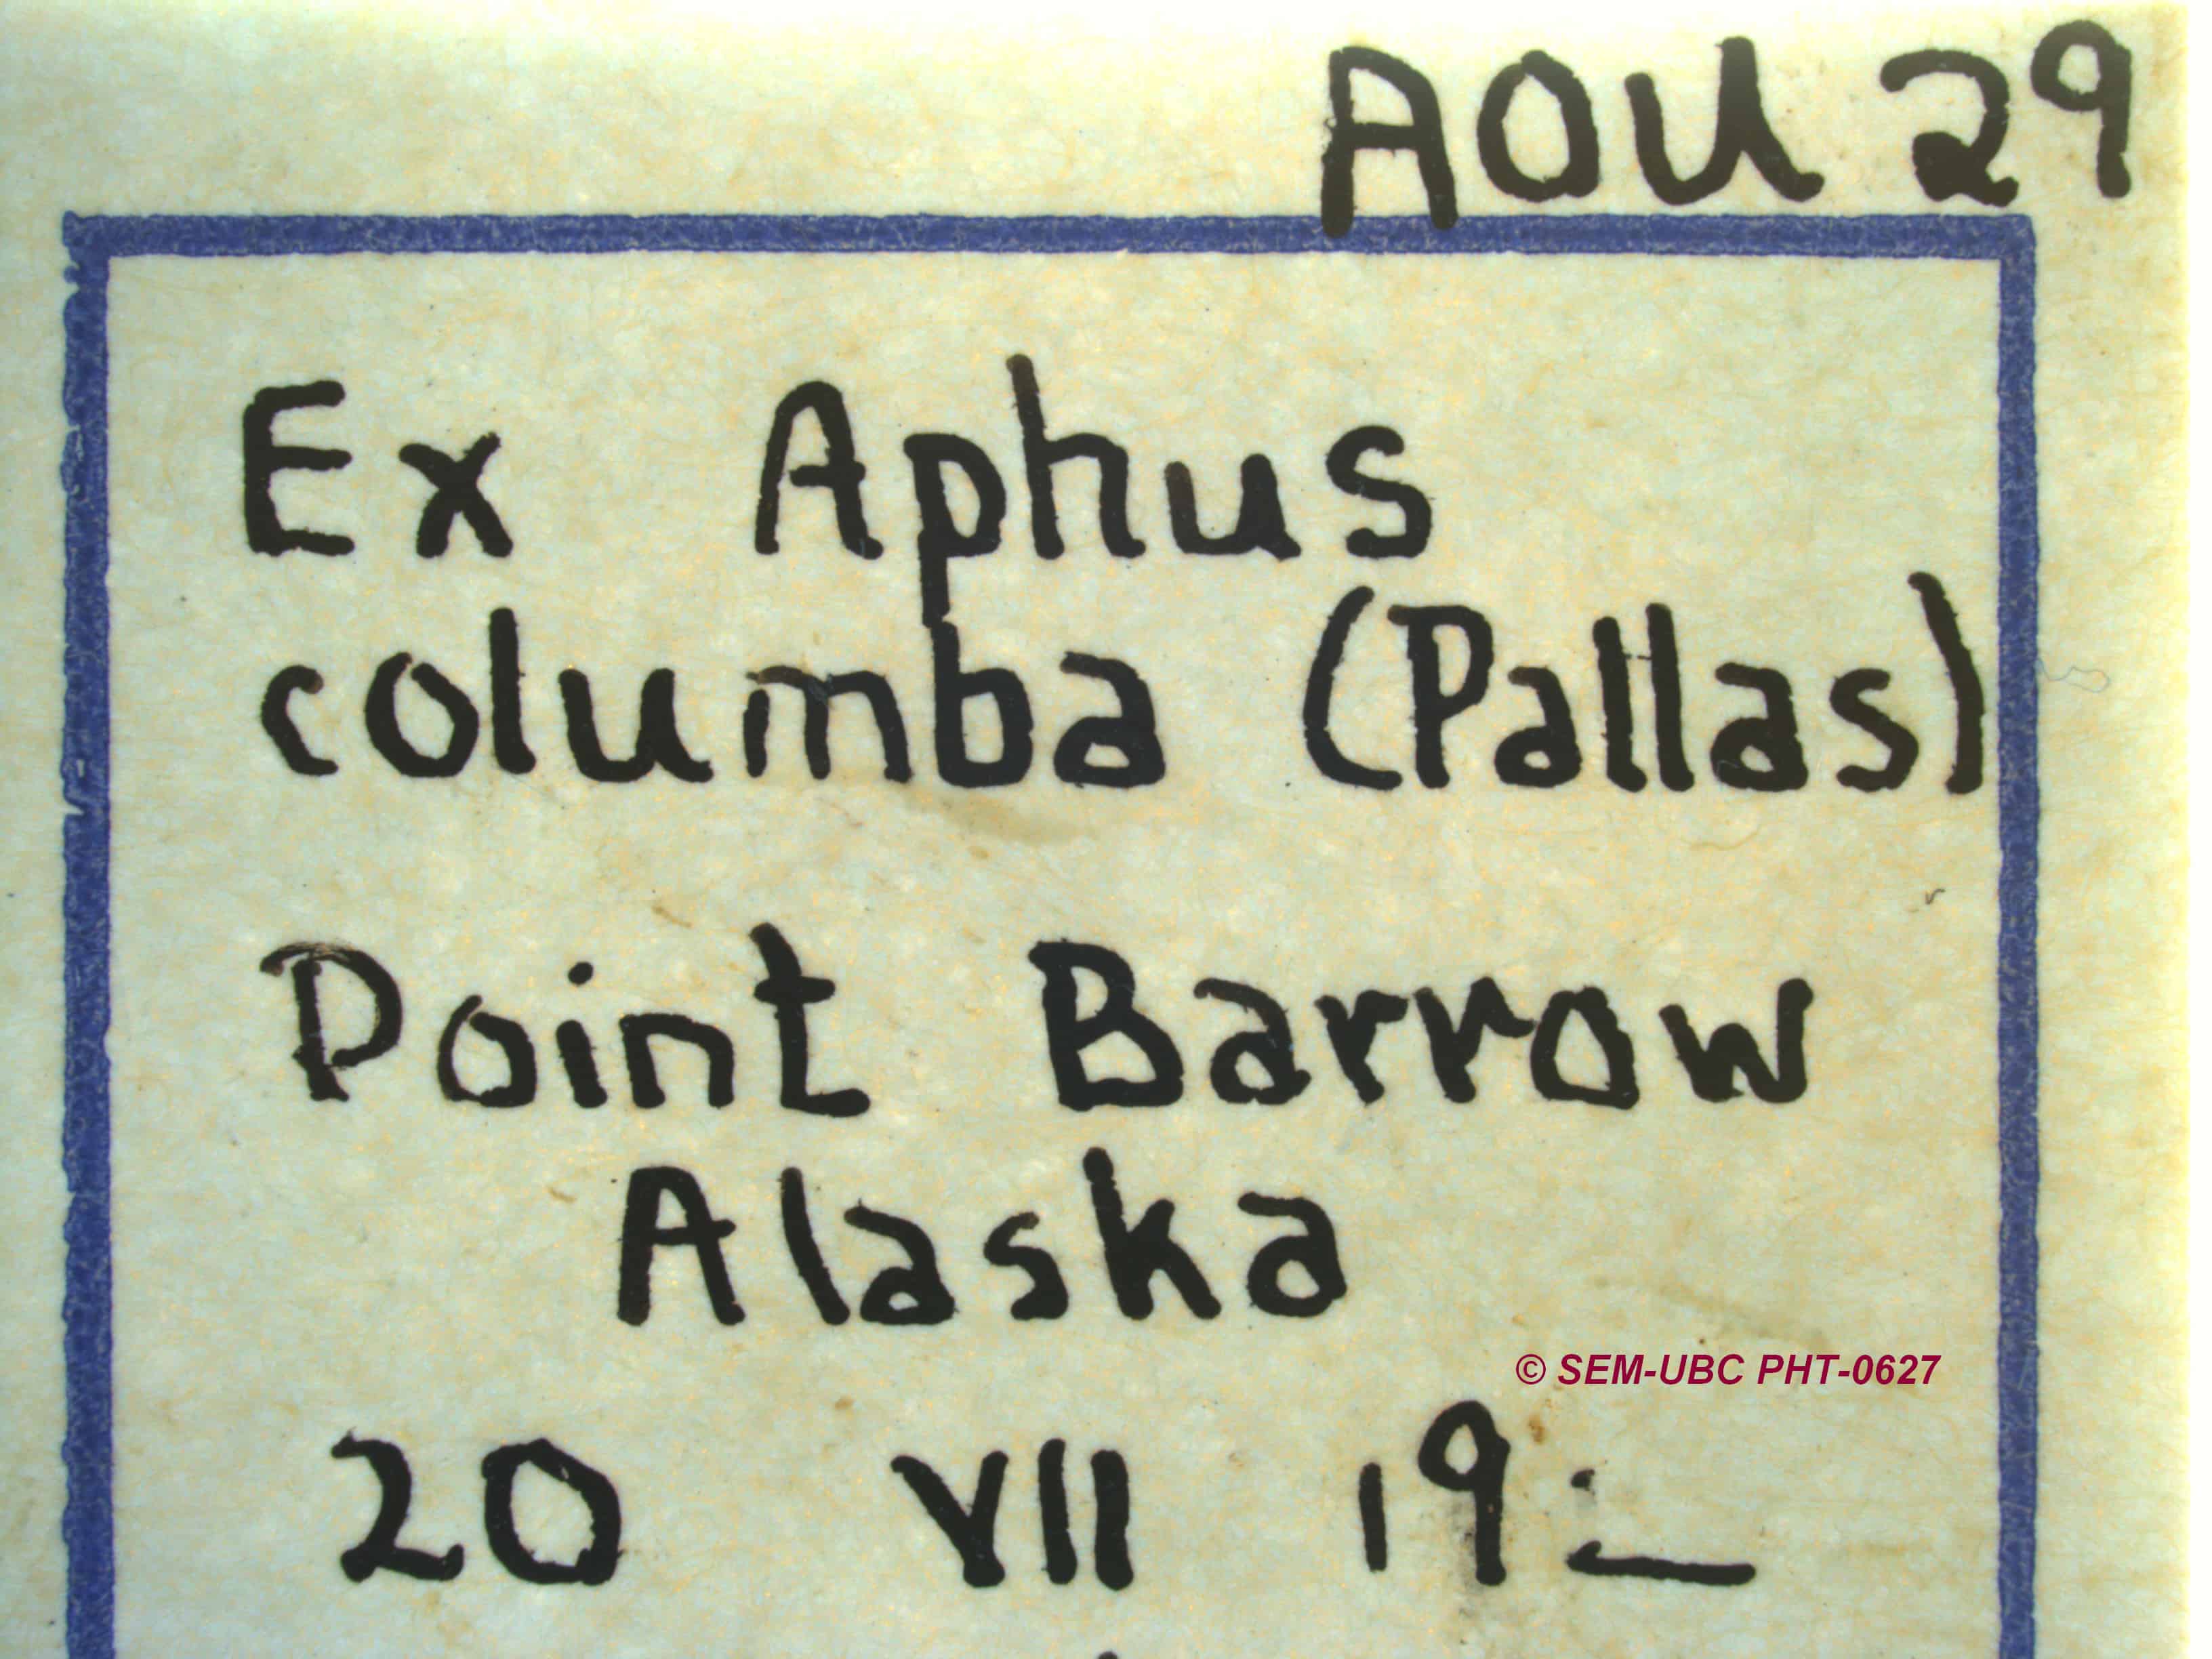 AOU 29
Ex Aphus
columba (Pallas)
Point Barrow
Alaska
© SEM-UBC PHT-0627
20 VII 19